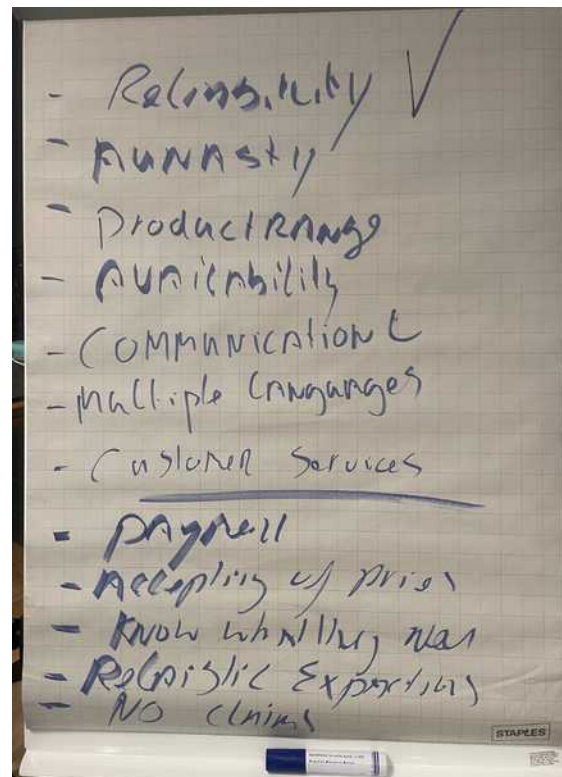 - Reliability
- AUNASty
- Product RANge
- AVAilability
- COMMUNICAtiON L
- Multiple LANguages
- CustomeR Services
- PAyment
- Accepting of prices
- KNow what they want
- Realistic Expections
- NO claims
STAPLES